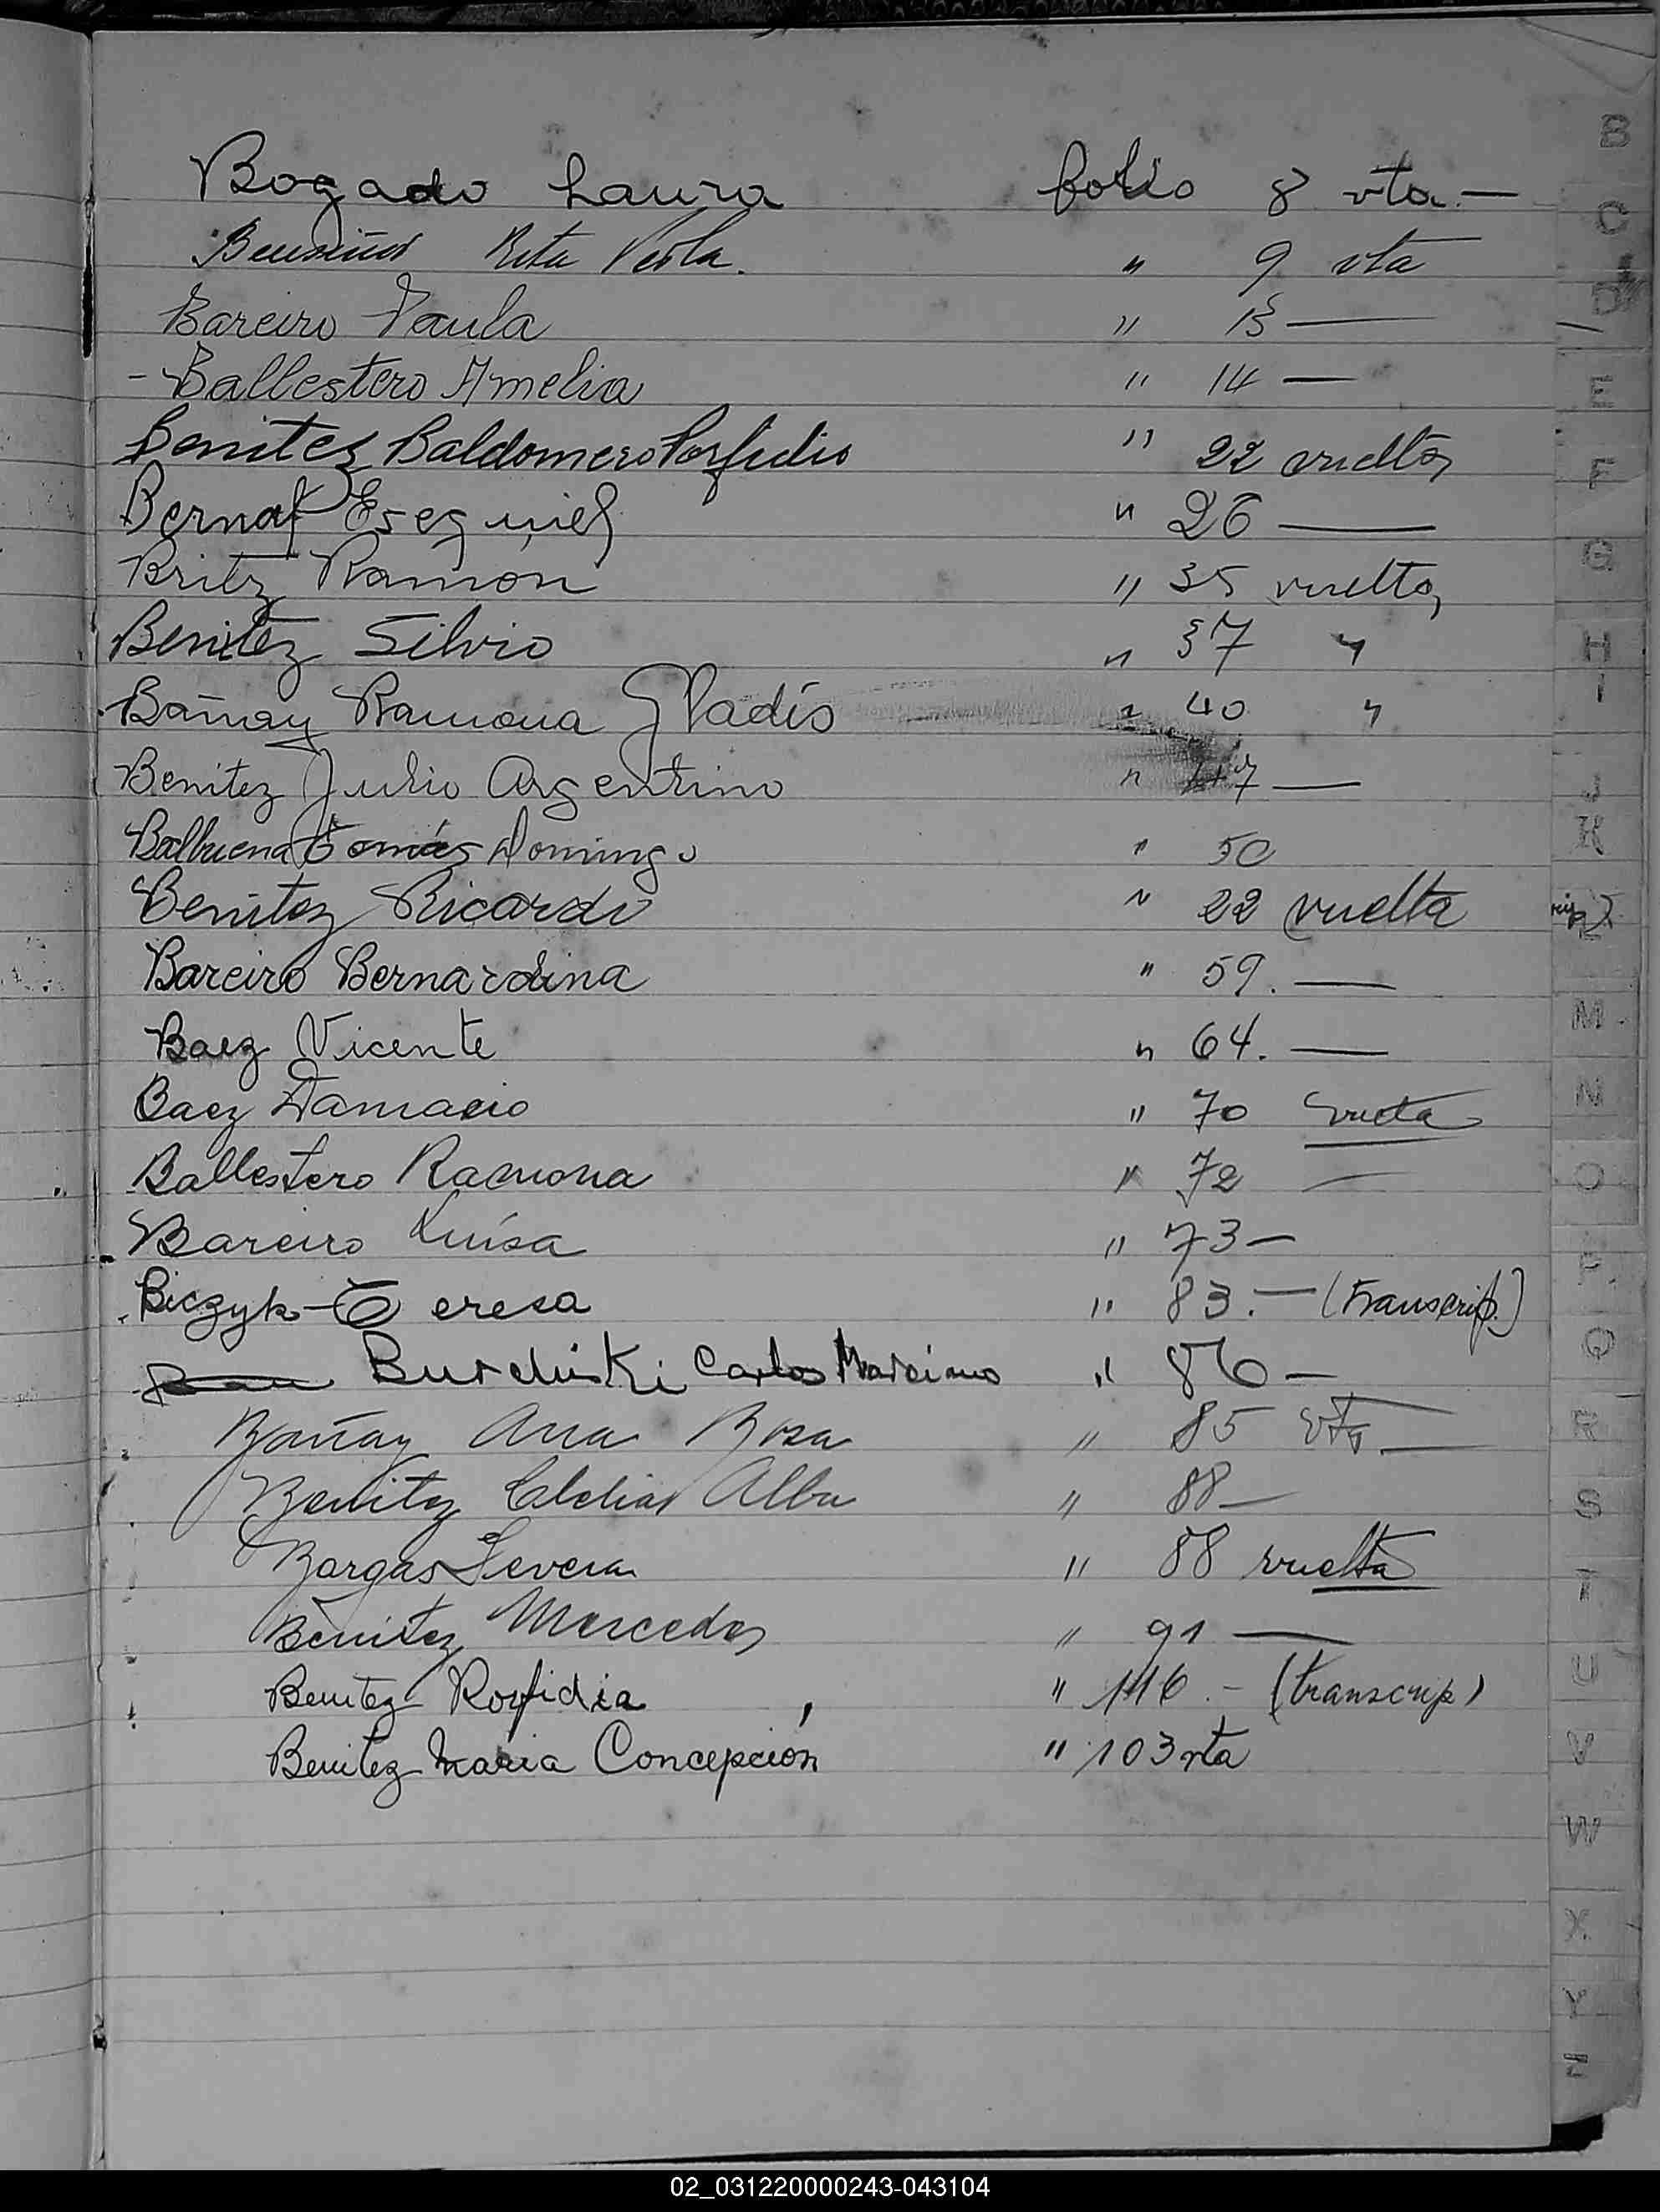 Bogado Laura folio 8 vta.—
Rita Perla. " 9 vta
Bareiro Paula " 13 —
- Ballestero Amelia " 14 —
Benitez Baldomero Porfidio " 22 vuelta
Bernal Esequiel " 26 —
Britz Ramón " 35 vuelta
Benitez Silvio " 37 "
Bañay Ramona Gladis " 40 "
Benitez Julio Argentino " 47 —
Balbuena Tomás Domingo " 50
Benitez Ricardo " 22 vuelta
Bareiro Bernardina " 59. —
Baez Vicente " 64. —
Baez Damacio " 70 vuelta
Ballestero Ramona " 72 —
Bareiro Luisa " 73 —
Biczyk Teresa " 83.— (transcrip.)
Burchiski Carlos Marciano " 86 —
Bañay Ana Rosa " 85 vta. —
Benitez Alba " 88 —
Bargas Severa " 88 vuelta
Benitez Mercedes " 91 —
Benitez Porfidia " 116.- (transcrip)
Benitez Maria Concepción " 103 vta
B
C
D
E
F
G
H
I
J
K
L
M
N
O
P
Q
R
S
T
U
V
W
X
Y
Z
02_031220000243-043104